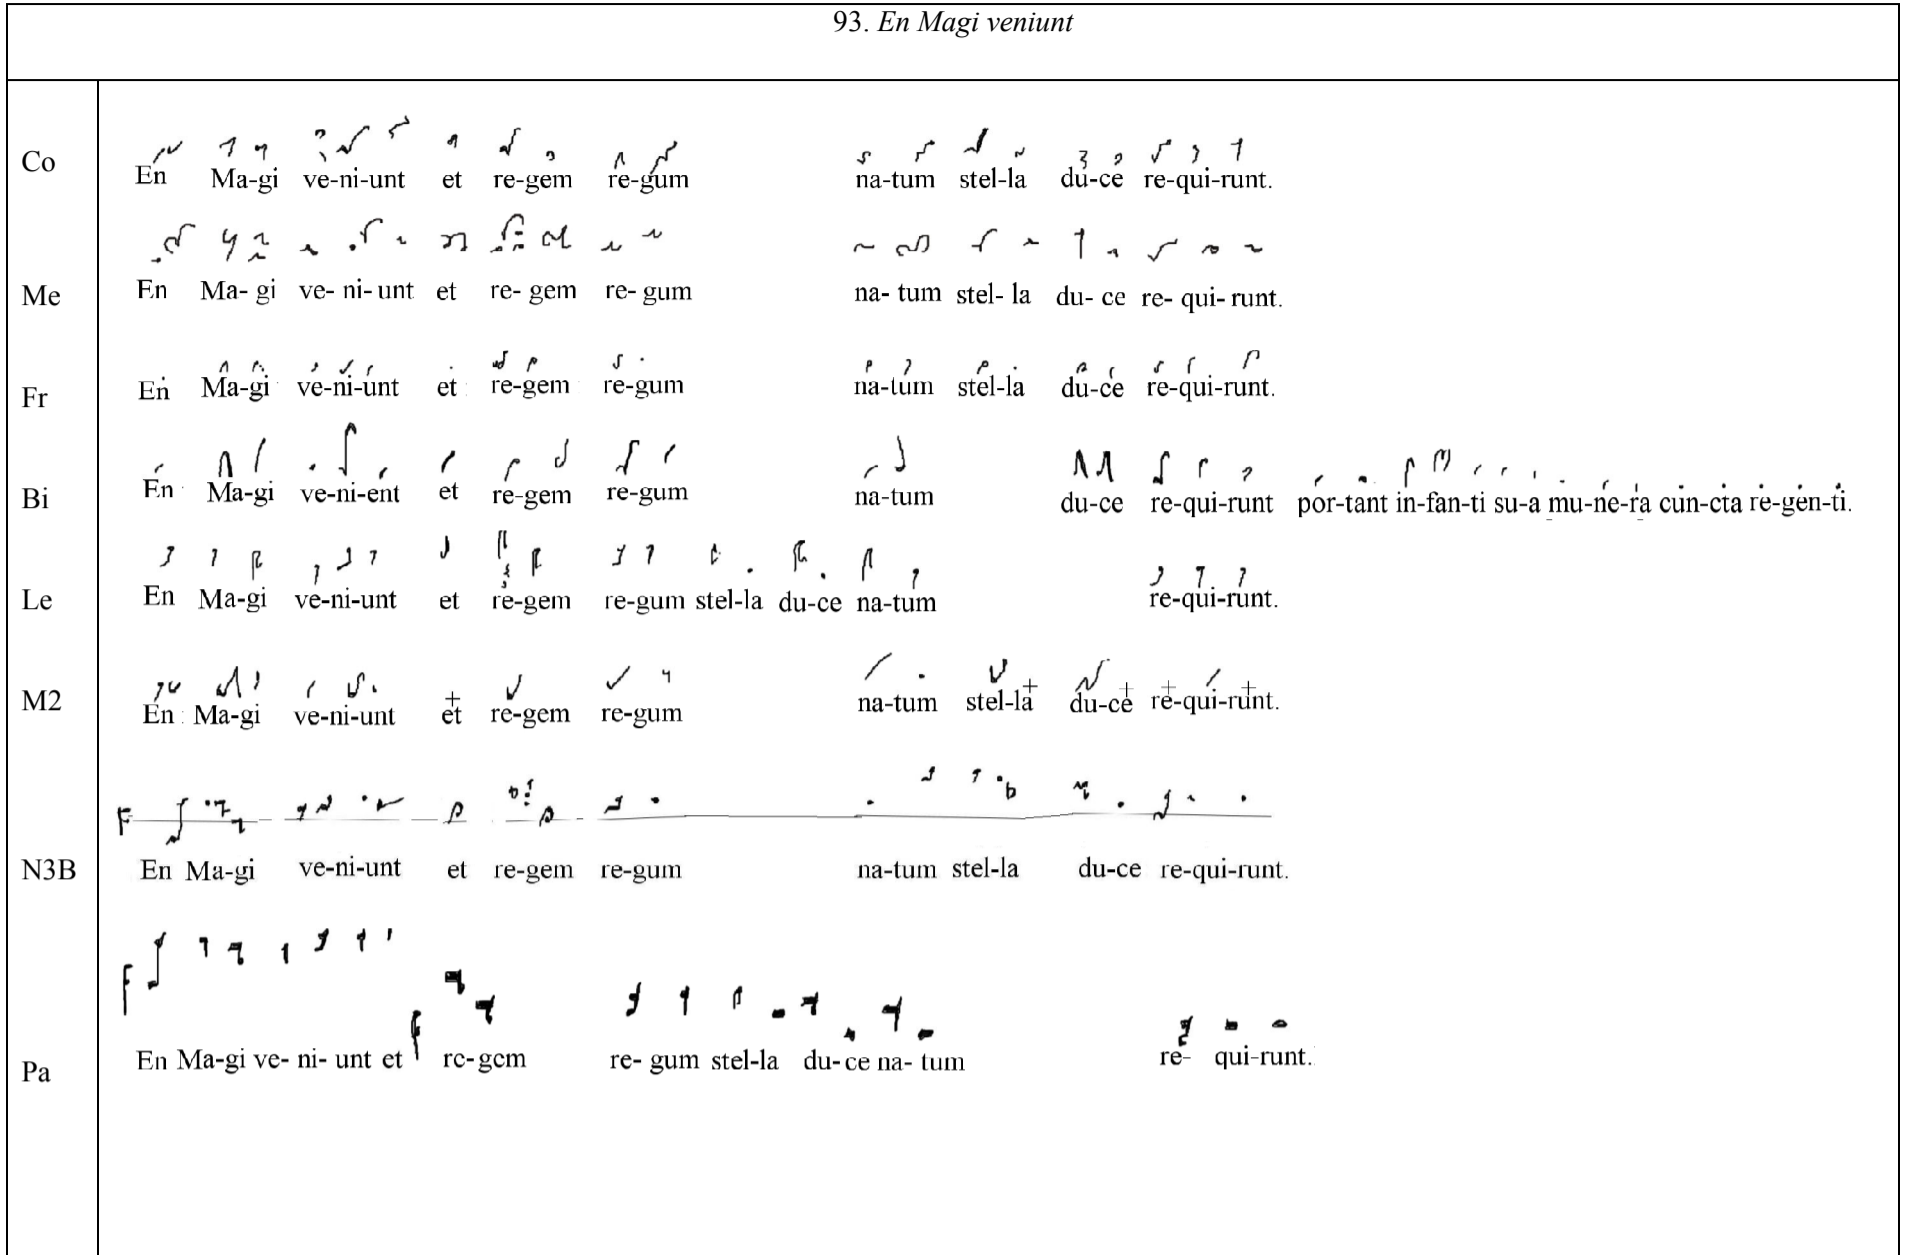 93. En Magi veniunt
Co En Ma-gi ve-ni-unt et re-gem re-gum na-tum stel-la du-ce re-qui-runt.
Me En Ma- gi ve- ni- unt et re- gem re- gum na- tum stel- la du- ce re- qui- runt.
Fr En Ma-gi ve-ni-unt et re-gem re-gum na-tum stel-la du-ce re-qui-runt.
Bi En Ma-gi ve-ni-ent et re-gem re-gum na-tum du-ce re-qui-runt por-tant in-fan-ti su-a mu-ne-ra cun-cta re-gen-ti.
Le En Ma-gi ve-ni-unt et re-gem re-gum stel-la du-ce na-tum re-qui-runt.
M2 En Ma-gi ve-ni-unt et re-gem re-gum na-tum stel-la du-ce re-qui-runt.
N3B En Ma-gi ve-ni-unt et re-gem re-gum na-tum stel-la du-ce re-qui-runt.
Pa En Ma-gi ve- ni- unt et re-gem re- gum stel-la du- ce na- tum re- qui-runt.